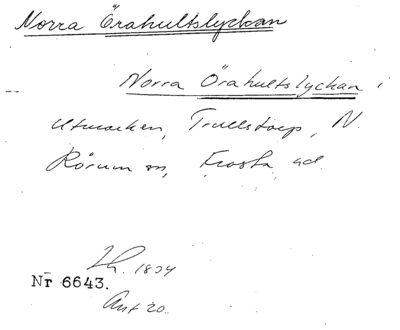 Norra Örahultslyckan
Norra Örahultslyckan i
Utmarken, Trullstorp, N.
Rörum sn, Frosta hd.
Lh. 1804
Nr 6643.
Akt 20.